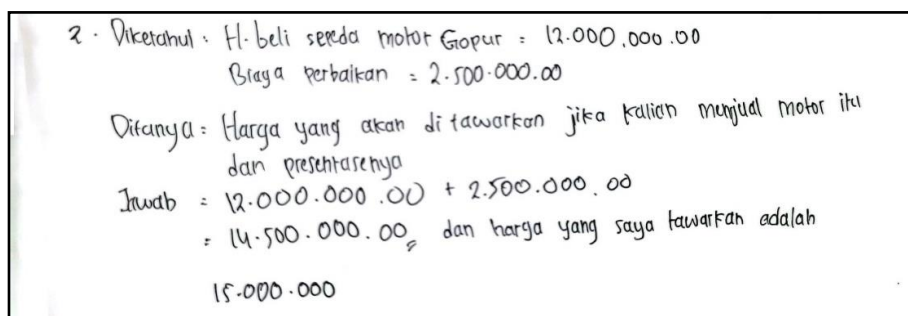 2. Diketahui : H. beli sepeda motor Gopur = 12.000.000.00
Biaya perbaikan = 2.500.000.00
Ditanya : Harga yang akan di tawarkan jika kalian menjual motor itu
dan presentasenya
Jawab = 12.000.000.00 + 2.500.000.00
= 14.500.000.00, dan harga yang saya tawarkan adalah
15.000.000